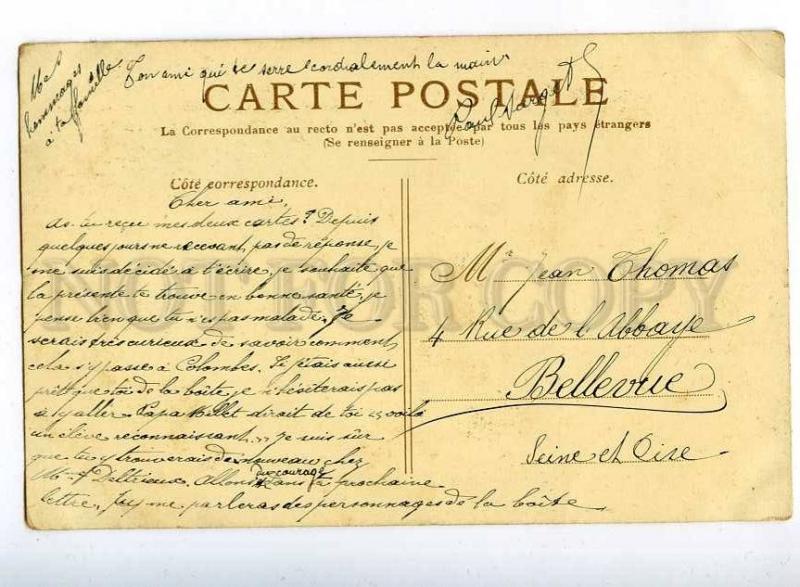 Mes
hommages
à ta famille
Ton ami qui te serre cordialement la main
CARTE POSTALE
La Correspondance au recto n'est pas acceptée par tous les pays étrangers
(Se renseigner à la Poste)
Côté correspondance.
Cher ami,
As-tu reçu mes deux cartes? Depuis
quelques jours ne recevant pas de réponse, je
me suis décidé à t'écrire, je souhaite que
la présente te trouve en bonne santé, je
pense bien que tu n'es pas malade. Je
serais très curieux de savoir comment
cela s'y passe à Colombes. Si j'étais aussi
près que toi de la boîte, je n'hésiterais pas
à y aller. Papa Billet dirait de toi "voilà
un élève reconnaissant," je suis sûr
que tu y trouverais de nouveau chez
Allons du courage dans ta prochaine
lettre, tu me parleras des personnages de la boîte
Côté adresse.
Mr Jean Thomas
4 Rue de l'Abbaye
Bellevue
Seine et Oise
NOT FOR COPY